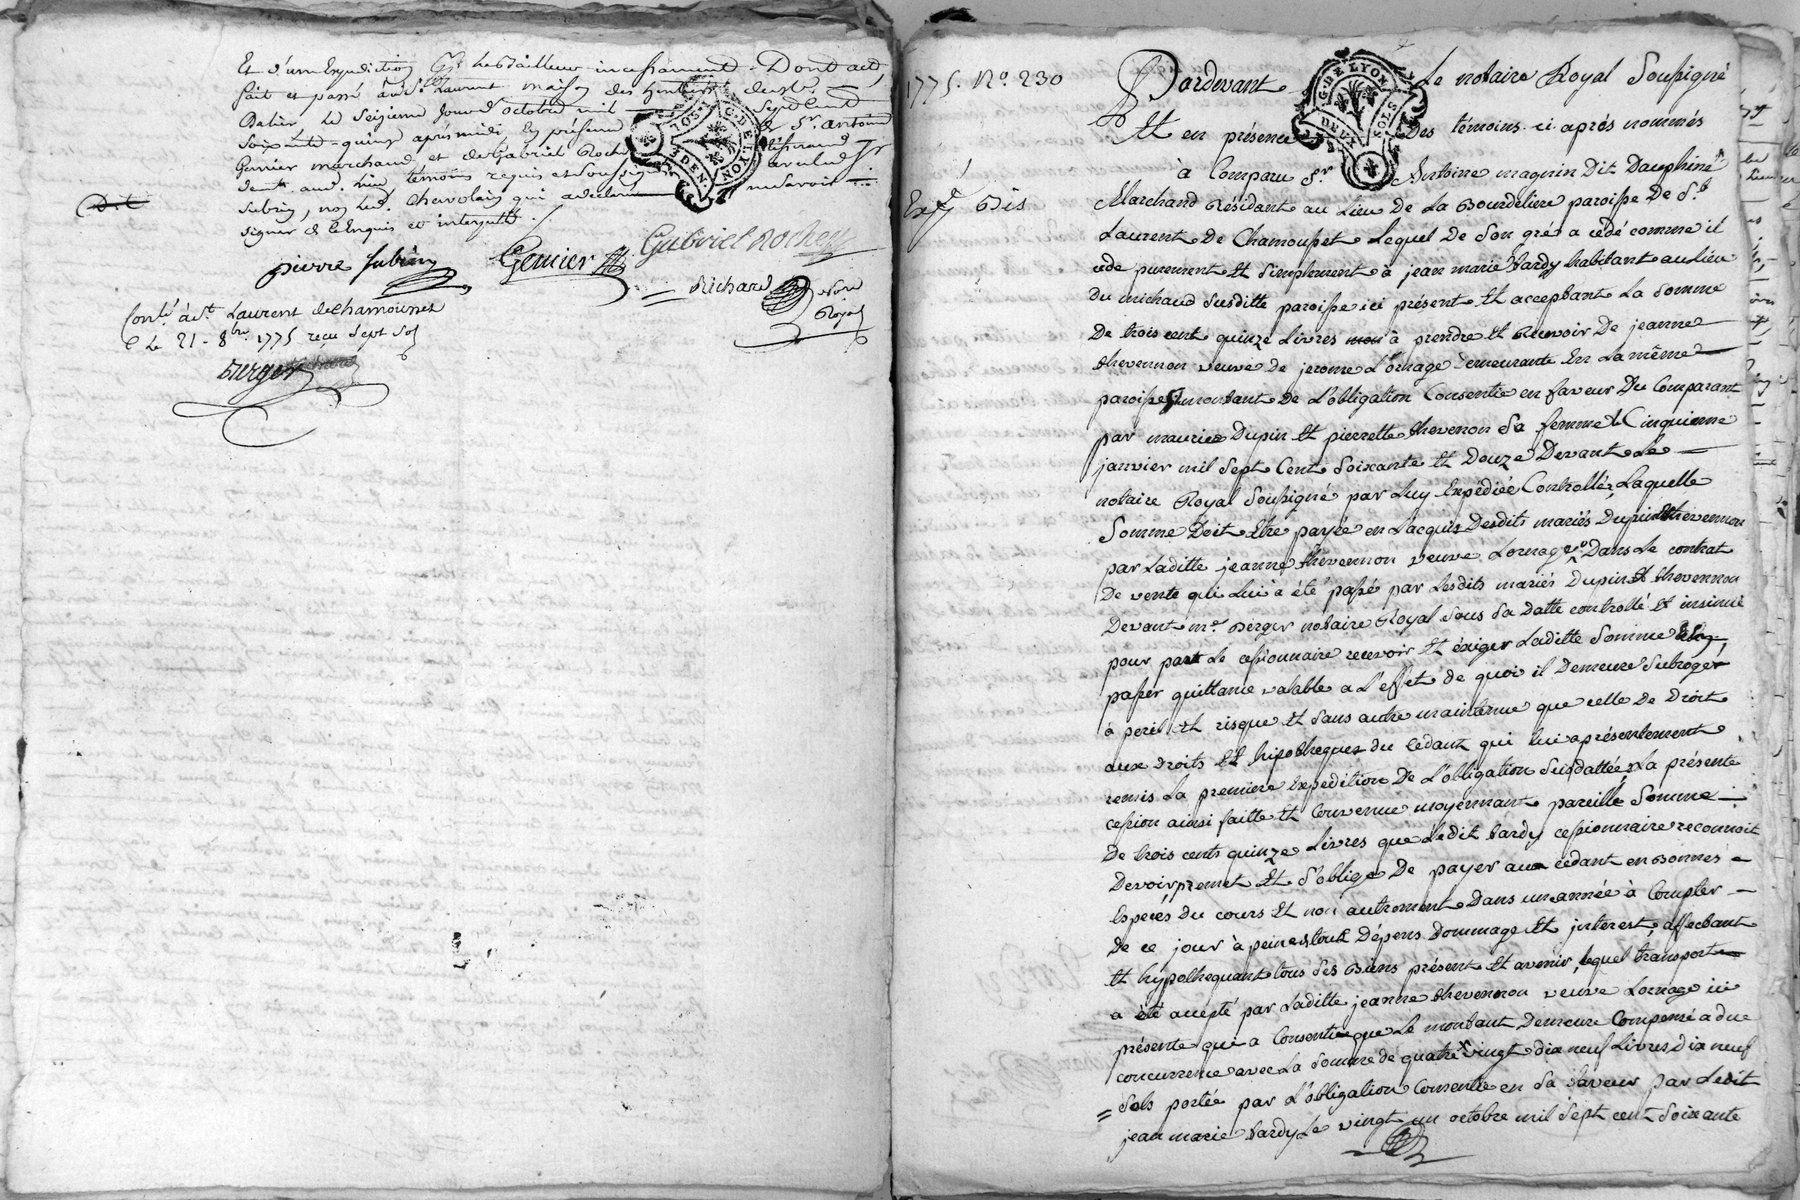 Et d'une Expedition Gte. Le Bailleur incessament - Dont acte,
fait et passé à St. Laurent maison des heritiers du Sr.
Balier Le Seizieme Jour d'octobre mil Sept Cent
Soixante-quinze apres midi, En présence de Sr. antoine
Genier marchand, et de Gabriel Rochey
demts. aud. Lieu, temoins requis et Soussignés
Subrin, non Led. Chevolain qui a declaré ne savoir
signer de ce Enquis et interpellé.
D. C
pierre Subrin
Genier
Gabriel Rochey
Richard Nore
Royal
Conlé. à St. Laurent de chamousset
Le 21 8bre. 1775 reçu Sept Sols
Berger
G. DE LYON
DEUX SOLS
1775. No. 230
Pardevant Le notaire Royal Soussigné
Et en présence Des témoins ci après nommés
à Comparu Sr. Antoine magnin Dit Dauphiné
Exp. Bis
Marchand Résidant au Lieu De La Bourdeliere paroisse De St.
Laurent De Chamousset Lequel De Son gré a cédé comme il
cede purement Et Simplement à jean marie Vardy habitant au Lieu
Du michaud Susditte paroisse ici présent Et acceptant La Somme
De trois cent quinze Livres à prendre Et Recevoir De jeanne
thevennon veuve de jerome Lornage Demeurante En La même
paroisse, montant De L'obligation Consentie en faveur Du Comparant
par maurice Dupin Et pierrette thevenon Sa femme Le Cinquieme
janvier mil Sept Cent Soixante Et Douze Devant Le
notaire Royal Soussigné par Luy Expédiée Controllée, Laquelle
Somme Doit Etre payée en L'acquis Desdits mariés Dupin Et thevennon
par Laditte jeanne thevennon veuve Lornage Dans Le contrat
De vente qui Lui à été passé par Lesdits mariés Dupin Et thevennon
Devant me. Berger notaire Royal Sous Sa Datte controllé Et insinué
pour par Le cessionnaire recevoir Et éxiger Laditte Somme En
passer quittance valable a L'effet de quoi il Demeure Subroger
à peril Et risque Et Sans autre maintenue que celle de Droit
aux Droits Et hipotheques du Cedant qui Lui a présentement
remis La premiere Expedition De L'obligation Susdattée, La présente
cession ainsi faitte Et Convenue moyennant pareille Somme
De trois cents quinze Livres que Ledit Vardy cessionnaire reconnoit
Devoir, promet Et S'oblige De payer au cedant en Bonnes
Especes du cours Et non autrement Dans une année à Compter
De ce jour à peine de tous Dépens Dommage Et interest, affectant
Et hypothequant tous Ses Biens présent Et avenir, Lequel transport
a été accepté par Laditte jeanne thevennon veuve Lornage ici
présente qui a Consentie que Le montant Demeure Compensé a due
concurrence avec La Somme de quatre vingt dix neuf Livres Dix neuf
Sols portée par L'obligation Consentie en Sa faveur par Ledit
jean marie Vardy Le vingt un octobre mil Sept cent Soixante